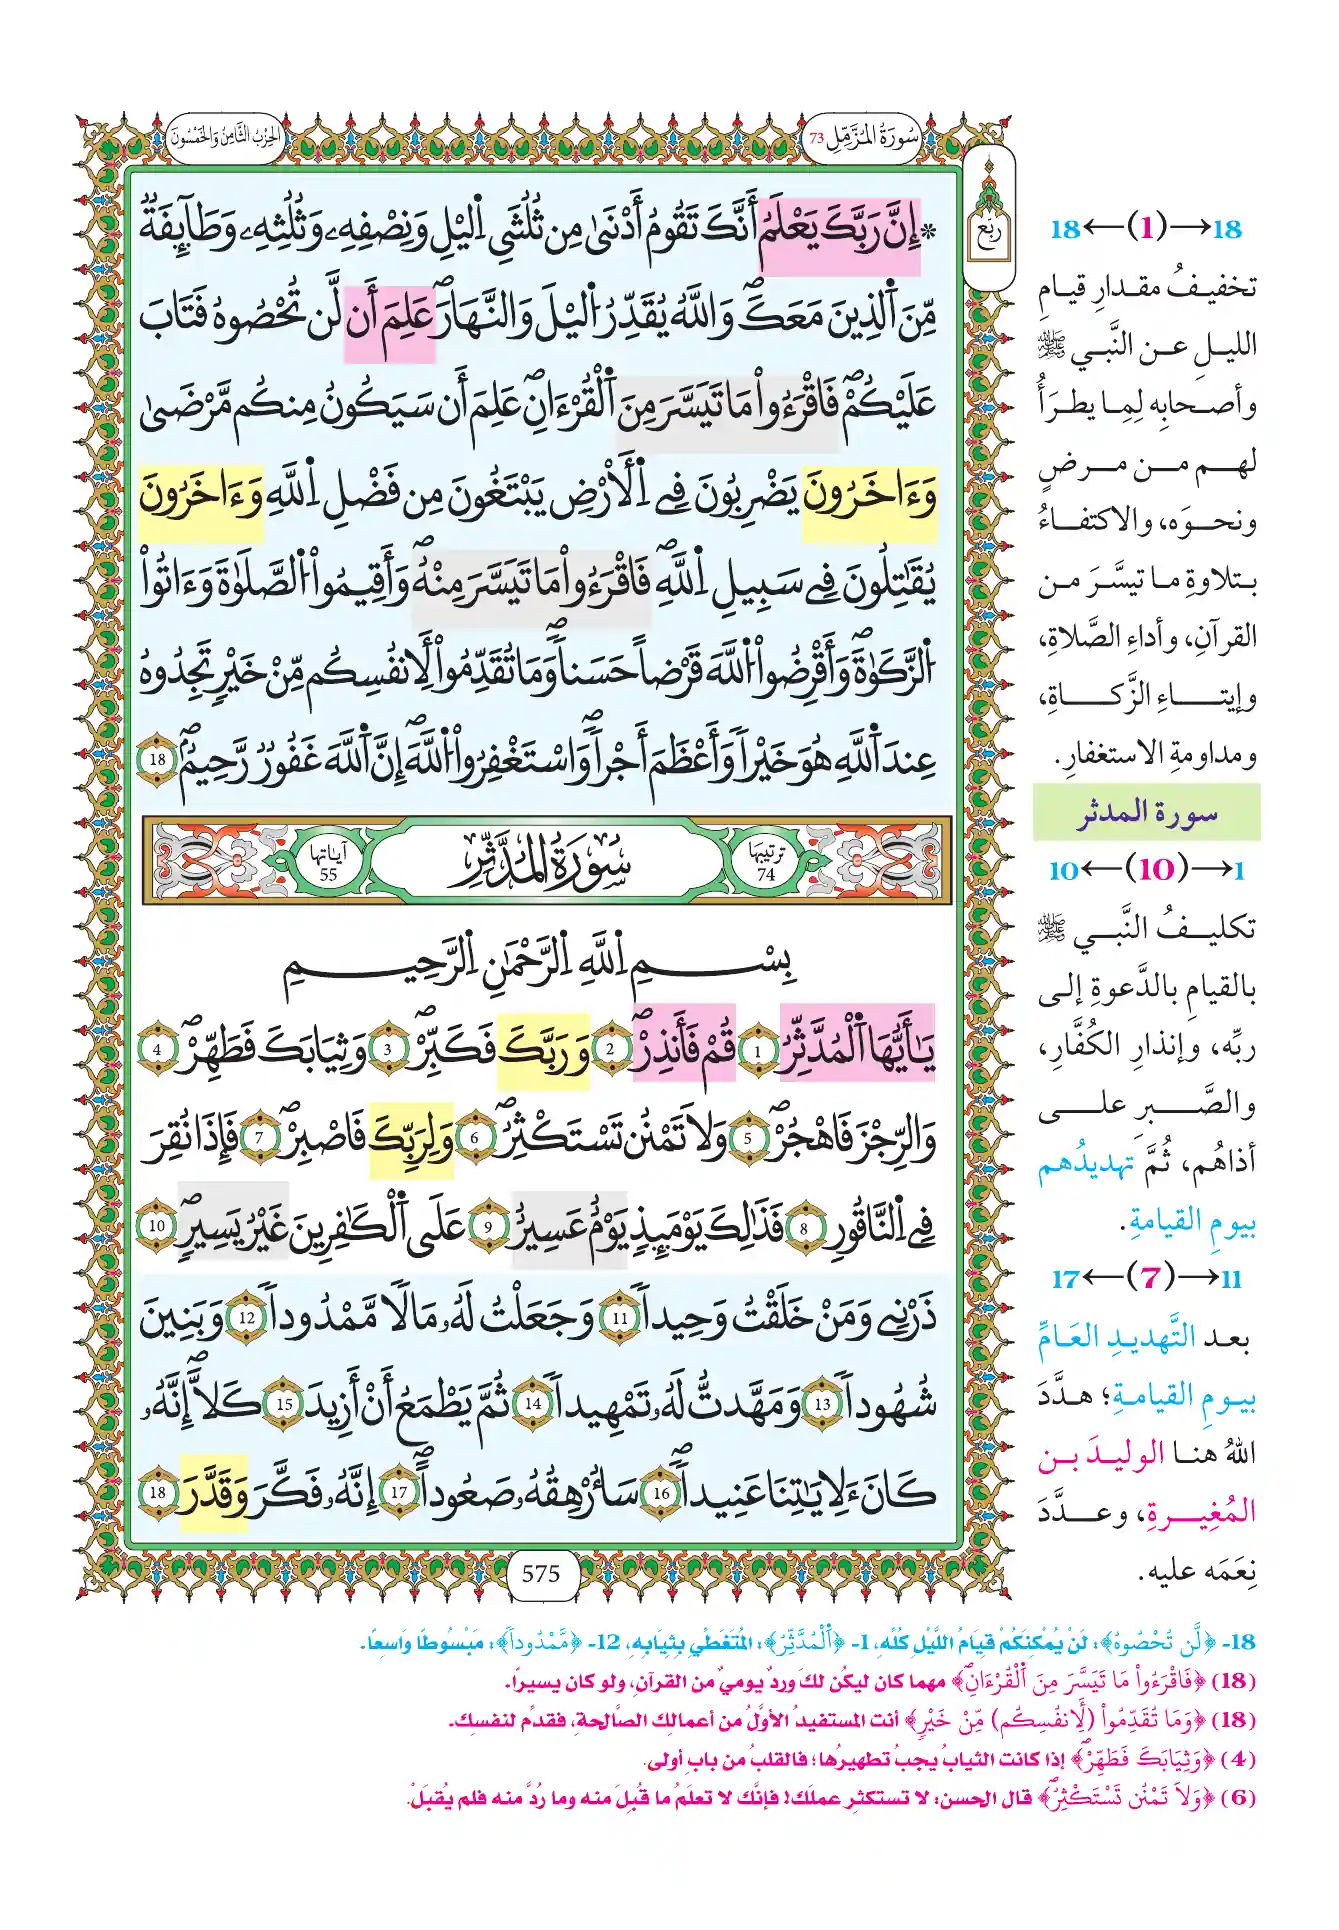 سُورَةُ المُزَّمِّلِ 73
الحِزْبُ الثَّامِنُ وَالخَمْسُونَ
رُبُع
* إِنَّ رَبَّكَ يَعْلَمُ أَنَّكَ تَقُومُ أَدْنَىٰ مِن ثُلُثَيِ اِ۬ليْلِ وَنِصْفِهِۦ وَثُلُثِهِۦ وَطَآئِفَةٌ
مِّنَ اَ۬لذِينَ مَعَكَۖ وَاللَّهُ يُقَدِّرُ اُ۬ليْلَ وَالنَّهَارَۖ عَلِمَ أَن لَّن تُحْصُوهُ فَتَابَ
عَلَيْكُمْۖ فَاقْرَءُواْ مَا تَيَسَّرَ مِنَ اَ۬لْقُرْءَانِۖ عَلِمَ أَن سَيَكُونُ مِنكُم مَّرْضَىٰ
وَءَاخَرُونَ يَضْرِبُونَ فِے اِ۬لَارْضِ يَبْتَغُونَ مِن فَضْلِ اِ۬للَّهِ وَءَاخَرُونَ
يُقَٰتِلُونَ فِے سَبِيلِ اِ۬للَّهِۖ فَاقْرَءُواْ مَا تَيَسَّرَ مِنْهُۖ وَأَقِيمُواْ اُ۬لصَّلَوٰةَ وَءَاتُواْ
اُ۬لزَّكَوٰةَۖ وَأَقْرِضُواْ اُ۬للَّهَ قَرْضاً حَسَناٗۖ وَمَا تُقَدِّمُواْ لِأَنفُسِكُم مِّنْ خَيْرٖ تَجِدُوهُ
عِندَ اَ۬للَّهِ هُوَ خَيْراٗ وَأَعْظَمَ أَجْراٗۖ وَاسْتَغْفِرُواْ اُ۬للَّهَۖ إِنَّ اَ۬للَّهَ غَفُورٞ رَّحِيمٌۖ 18
ترتيبها 74 سُورَةُ المُدَّثِّرِ آياتها 55
بِسْمِ اِ۬للَّهِ اِ۬لرَّحْمَٰنِ اِ۬لرَّحِيمِ
يَٰأَيُّهَا اَ۬لْمُدَّثِّرُ 1 قُمْ فَأَنذِرْۖ 2 وَرَبَّكَ فَكَبِّرْۖ 3 وَثِيَابَكَ فَطَهِّرْۖ 4
وَالرِّجْزَ فَاهْجُرْۖ 5 وَلَا تَمْنُن تَسْتَكْثِرُۖ 6 وَلِرَبِّكَ فَاصْبِرْۖ 7 فَإِذَا نُقِرَ
فِے اِ۬لنَّاقُورِ 8 فَذَٰلِكَ يَوْمَئِذٖ يَوْمٌ عَسِيرٌ 9 عَلَى اَ۬لْكَٰفِرِينَ غَيْرُ يَسِيرٖۖ 10
ذَرْنِے وَمَنْ خَلَقْتُ وَحِيداٗ 11 وَجَعَلْتُ لَهُۥ مَالاٗ مَّمْدُوداٗ 12 وَبَنِينَ
شُهُوداٗ 13 وَمَهَّدتُّ لَهُۥ تَمْهِيداٗ 14 ثُمَّ يَطْمَعُ أَنْ أَزِيدَ 15 كَلَّاۖ إِنَّهُۥ
كَانَ ءَلِأيَٰتِنَا عَنِيداٗۖ 16 سَأُرْهِقُهُۥ صَعُوداًۖ 17 إِنَّهُۥ فَكَّرَ وَقَدَّرَ 18
575
18←(1)→18
تخفيفُ مقدارِ قيامِ
الليلِ عن النَّبي ﷺ
وأصحابِه لِمِا يطرَأُ
لهم من مرضٍ
ونحوَه، والاكتفاءُ
بتلاوةِ ما تيسَّرَ من
القرآنِ، وأداءِ الصَّلاةِ،
وإيتاءِ الزَّكاةِ،
ومداومةِ الاستغفارِ.
سورة المدثر
1←(10)→10
تكليفُ النَّبي ﷺ
بالقيامِ بالدَّعوةِ إلى
ربِّه، وإنذارِ الكُفَّارِ،
والصَّبرِ على
أذاهُم، ثُمَّ تهديدُهم
بيومِ القيامةِ.
11←(7)→17
بعد التَّهديدِ العَامِّ
بيومِ القيامةِ؛ هدَّدَ
اللهُ هنا الوليدَ بن
المُغِيرةِ، وعدَّدَ
نِعَمَه عليه.
18- ﴿لَّن تُحْصُوهُ﴾: لَنْ يُمْكِنَكُمْ قيَامُ اللَّيْلِ كُلِّه، 1- ﴿اَ۬لْمُدَّثِّرُ﴾: المُتَغَطِّي بِثِيَابِهِ، 12- ﴿مَّمْدُوداٗ﴾: مَبْسُوطًا وَاسِعًا.
(18) ﴿فَاقْرَءُواْ مَا تَيَسَّرَ مِنَ اَ۬لْقُرْءَانِۖ﴾ مهما كان ليكُن لكَ وردٌ يوميٌ من القرآنِ، ولو كان يسيراً.
(18) ﴿وَمَا تُقَدِّمُواْ (لِأَنفُسِكُم) مِّنْ خَيْرٖ﴾ أنت المستفيدُ الأوَّلُ من أعمالِك الصَّالحةِ، فقدِّم لنفسِك.
(4) ﴿وَثِيَابَكَ فَطَهِّرْۖ﴾ إذا كانت الثيابُ يجبُ تطهيرُها؛ فالقلبُ من بابِ أولى.
(6) ﴿وَلَا تَمْنُن تَسْتَكْثِرُۖ﴾ قال الحسن: لا تستكثرِ عملَك؛ فإنَّك لا تعلَمُ ما قُبِلَ منه وما رُدَّ منه فلم يُقبَلْ.